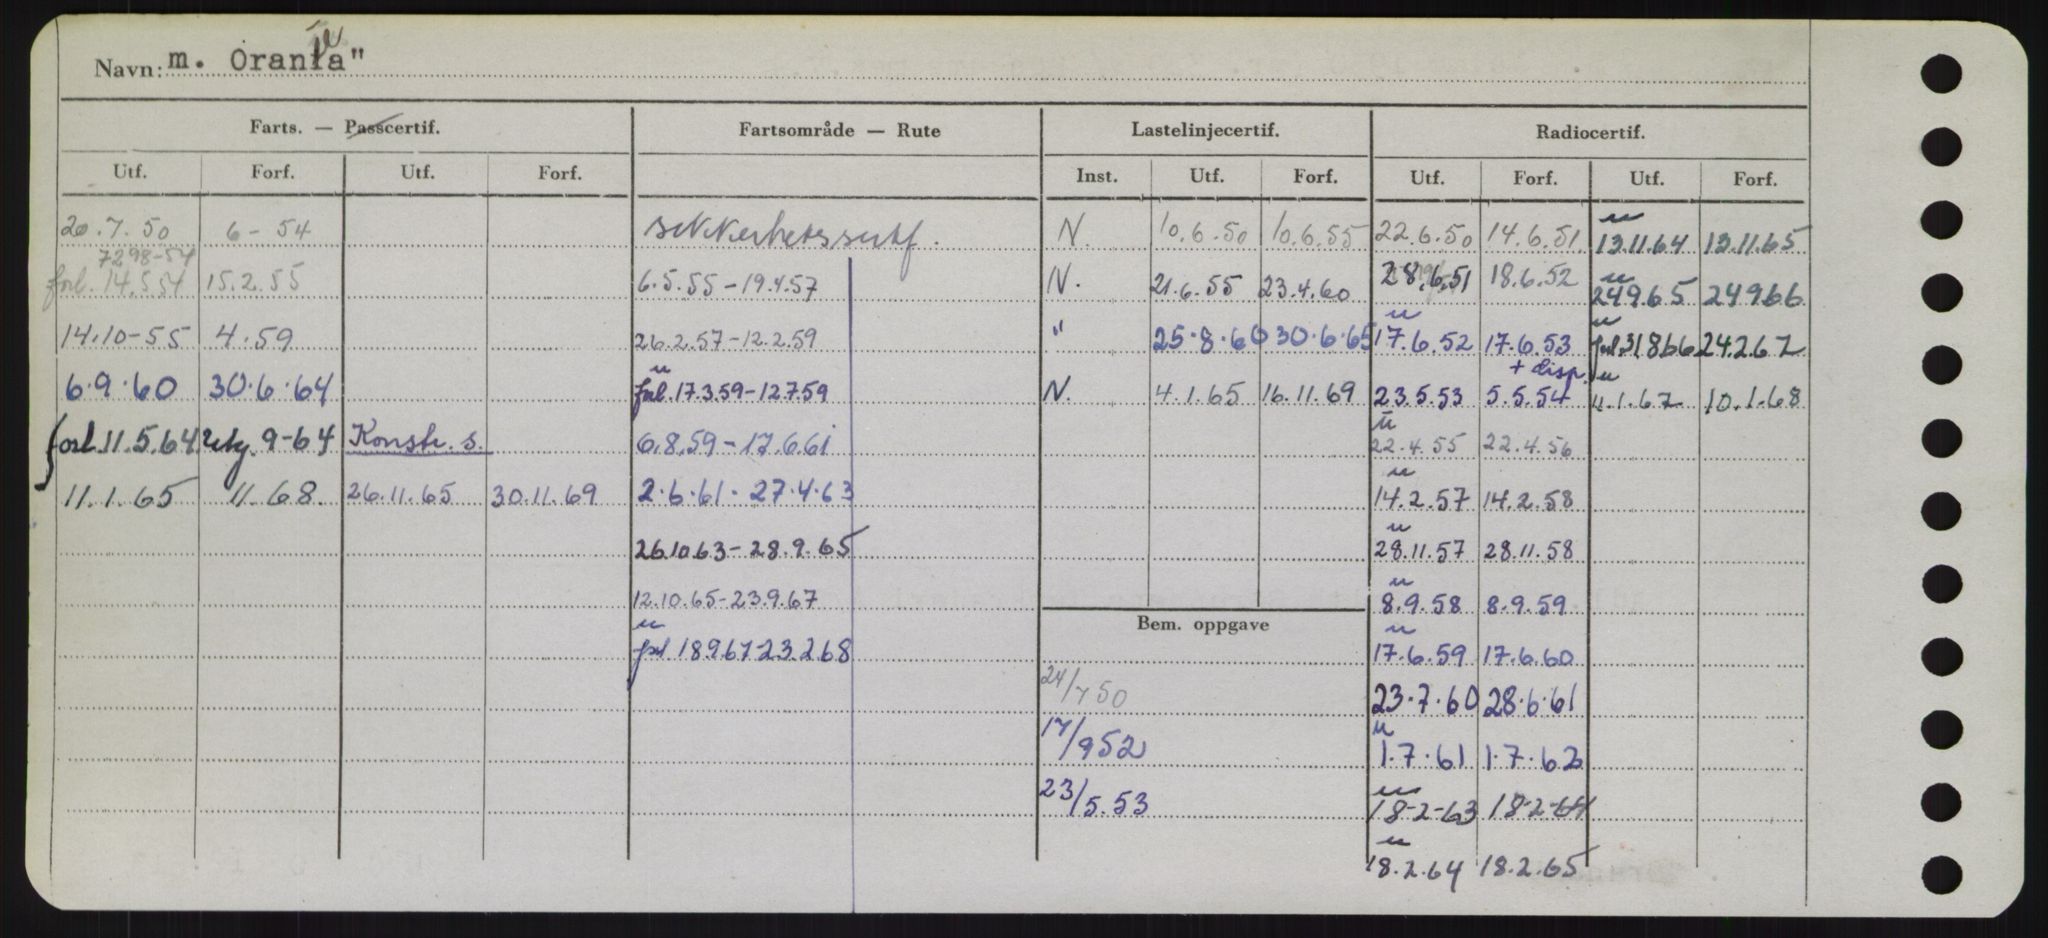 Navn: m. Orania"
Farts. — Passcertif. Fartsområde — Rute Lastelinjecertif. Radiocertif.
Utf. Forf. Utf. Forf. Inst. Utf. Forf. Utf. Forf. Utf. Forf.
20.7.50 6-54 N. 10.6.50 10.6.55 22.6.50 14.6.51 u 13.11.64 13.11.65
7298-54
forl. 14.5.54 15.2.55 6.5.55-19.4.57 N. 21.6.55 23.4.60 28.6.51 18.6.52 u 24965 24966
14.10-55 4.59 26.2.57-12.2.59 " 25.8.60 30.6.65 u 17.6.52 17.6.53 u forl. 31866 24.2.67
+ disp.
6.9.60 30.6.64 u forl. 17.3.59-12.7.59 N. 4.1.65 16.11.69 23.5.53 5.5.54 u 11.1.67 10.1.68
forl. 11.5.64 9-64 Konstr. s. 6.8.59-17.6.61 u 22.4.55 22.4.56
11.1.65 11.68. 26.11.65 30.11.69 2.6.61. 27.4.63 u 14.2.57 14.2.58
26.10.63-28.9.65 u 28.11.57 28.11.58
12.10.65-23.9.67 u 8.9.58 8.9.59
Bem. oppgave
u forl 18967-23.2.68 u 17.6.59 17.6.60
24/7 50 23.7.60 28.6.61
17/9 52 u 1.7.61 1.7.62
23/5.53 u 18-2-63 18-2-64
u 18.2.64 18.2.65